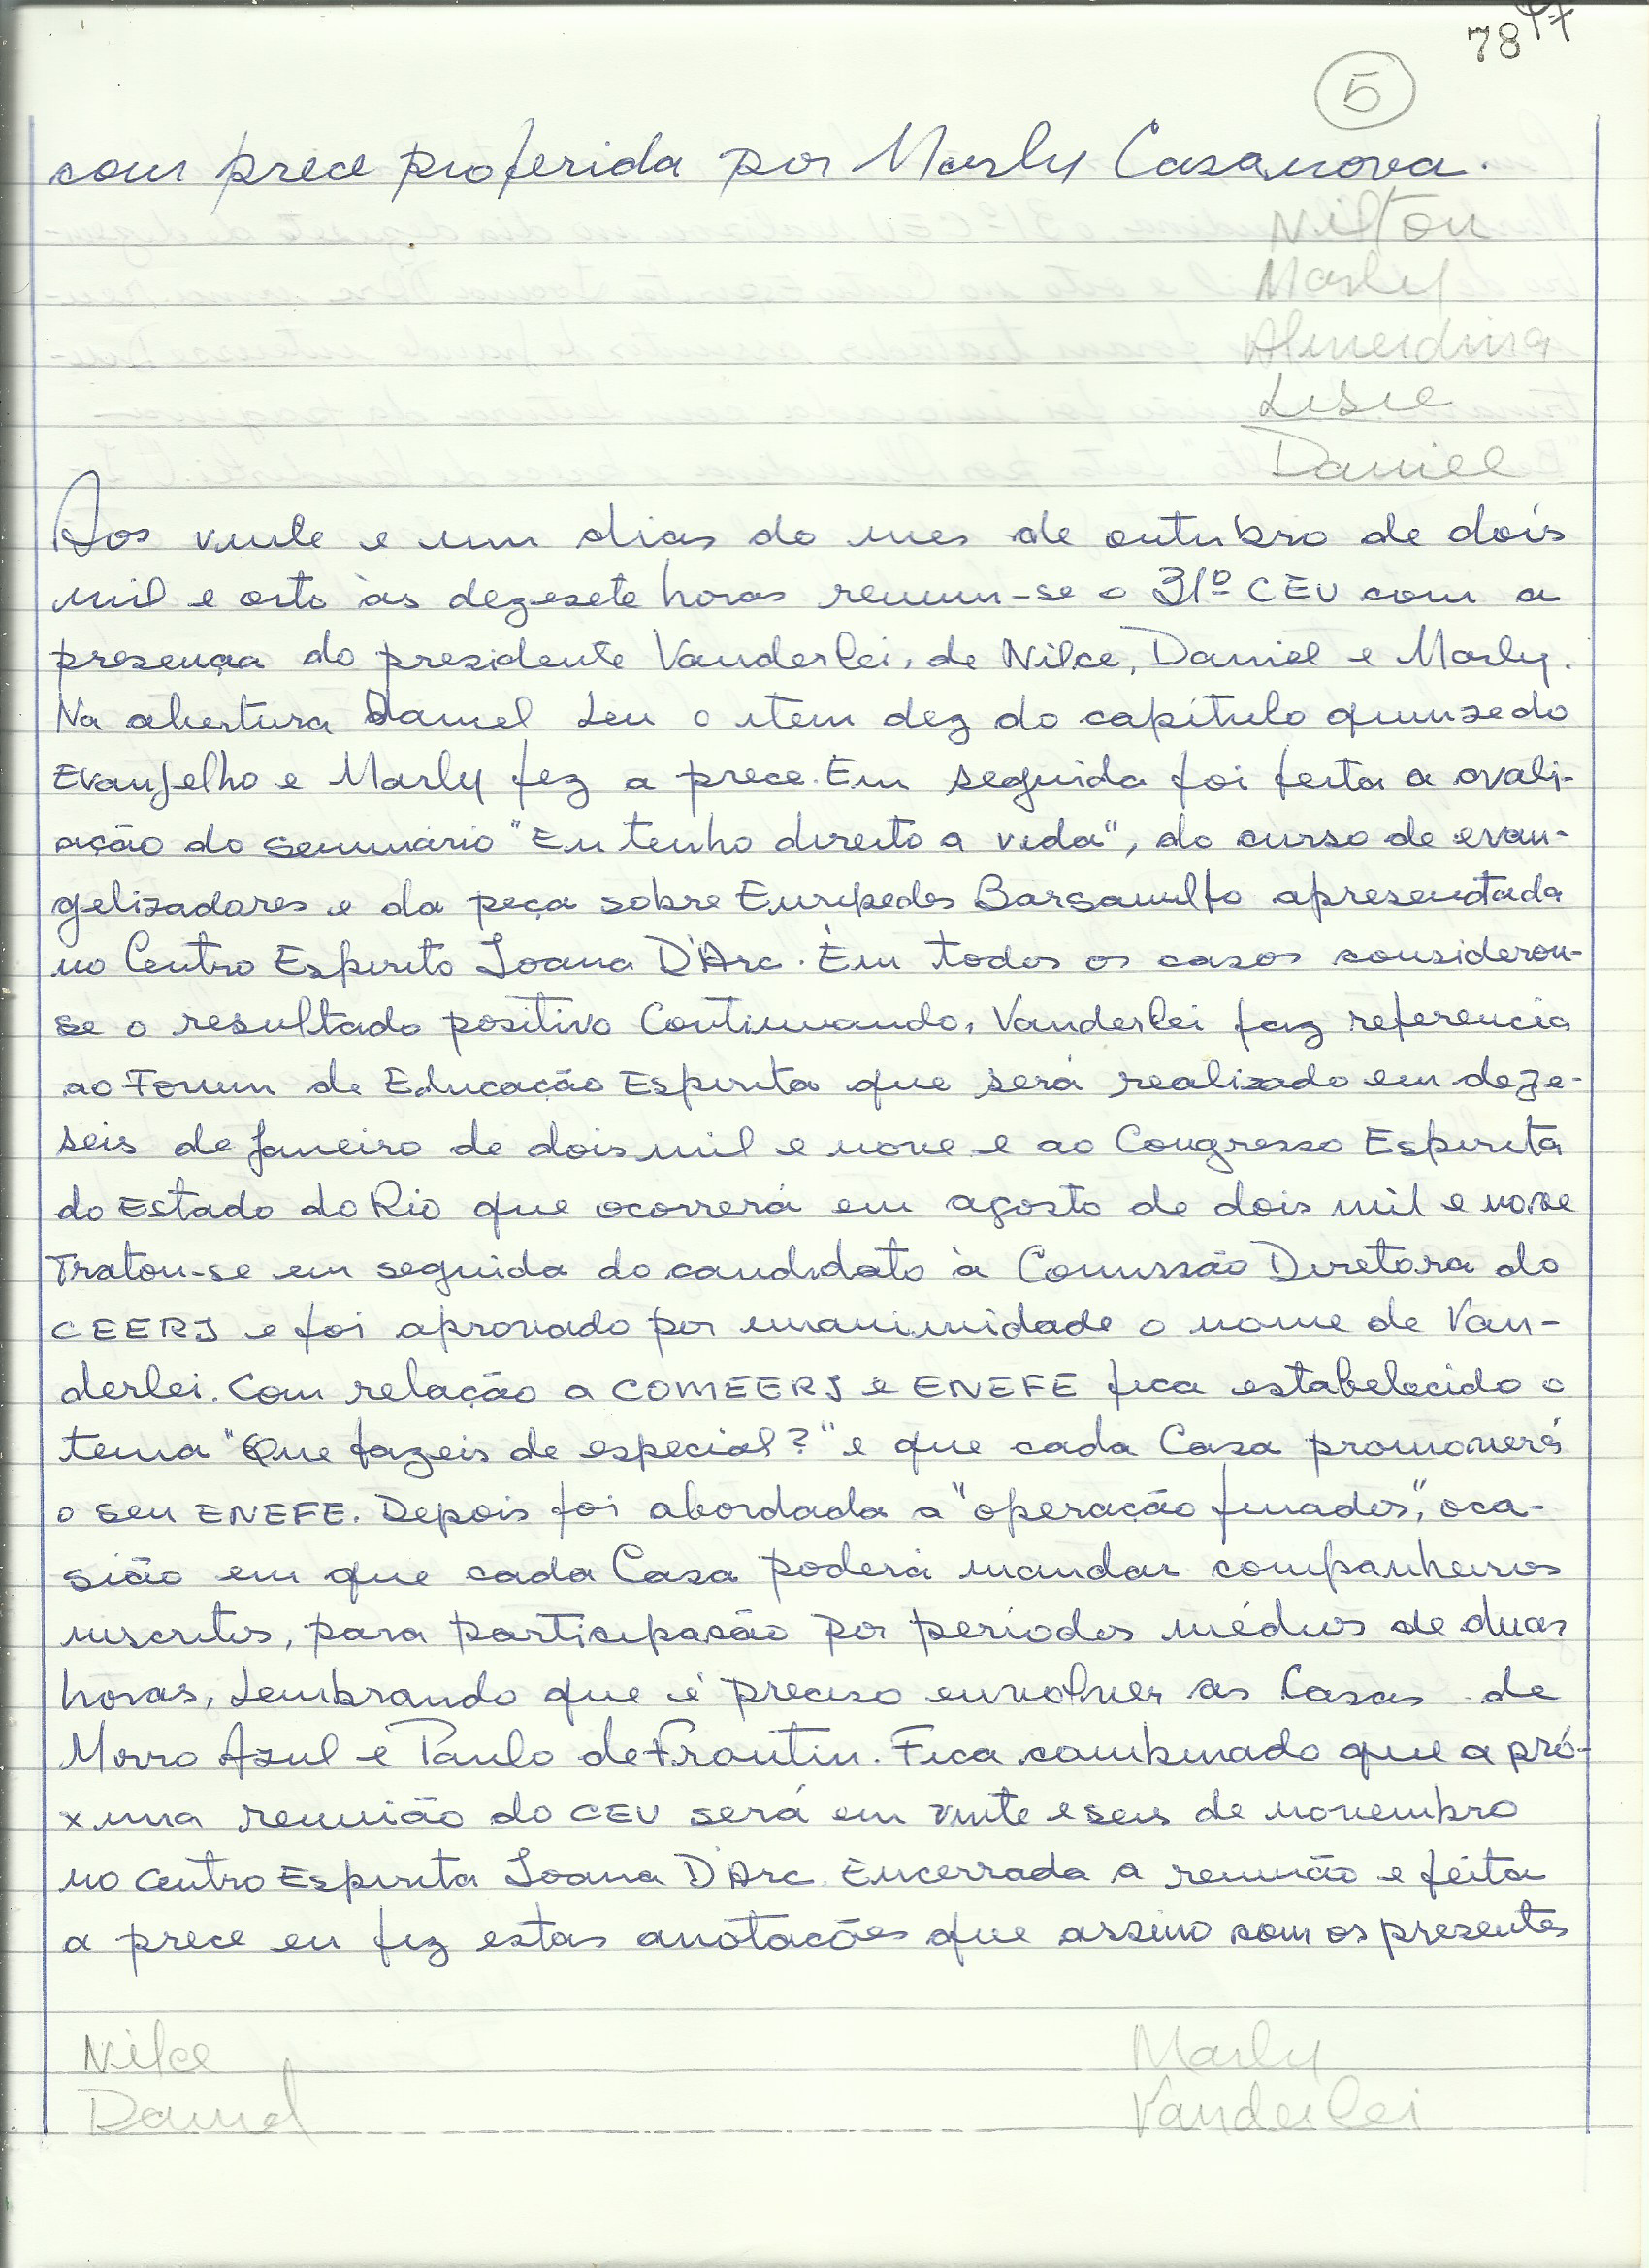 78 47
5
com prece proferida por Marly Casanova.
Nilton
Marly
Almerdina
Lisie
Daniel
Aos vinte e um dias do mes de outubro de dois
mil e oito às dezesete horas reuniu-se o 31º CEU com a
presença do presidente Vanderlei, de Nilce, Daniel e Marly.
Na abertura Daniel leu o item dez do capítulo quinze do
Evangelho e Marly fez a prece. Em seguida foi feita a avali-
ação do seminário "Eu tenho direito a vida", do curso de evan-
gelizadores e da peça sobre Eurípedes Barsanulfo apresentada
no Centro Espirito Joana D'Arc. Em todos os casos considerou-
se o resultado positivo Continuando, Vanderlei faz referencia
ao Forum de Educação Espirita que será realizado em deze-
seis de janeiro de dois mil e nove e ao Congresso Espirita
do Estado do Rio que ocorrerá em agosto de dois mil e nove
Tratou-se em seguida do candidato à Comissão Diretora do
CEERJ e foi aprovado por unanimidade o nome de Van-
derlei. Com relação a COMEERJ e ENEFE fica estabelecido o
tema "Que fazeis de especial?" e que cada Casa promoverá
o seu ENEFE. Depois foi abordada a "operação finados", oca-
sião em que cada Casa poderá mandar companheiros
inscritos, para participação por períodos médios de duas
horas, Lembrando que é preciso envolver as Casas de
Morro Azul e Paulo de Frontin. Fica combinado que a pró-
xima reunião do CEU será em vinte e seis de novembro
no Centro Espirita Joana D'Arc Encerrada a reunião e feita
a prece eu fiz estas anotacões que assino com os presentes
Nilce Marly
Daniel Vanderlei